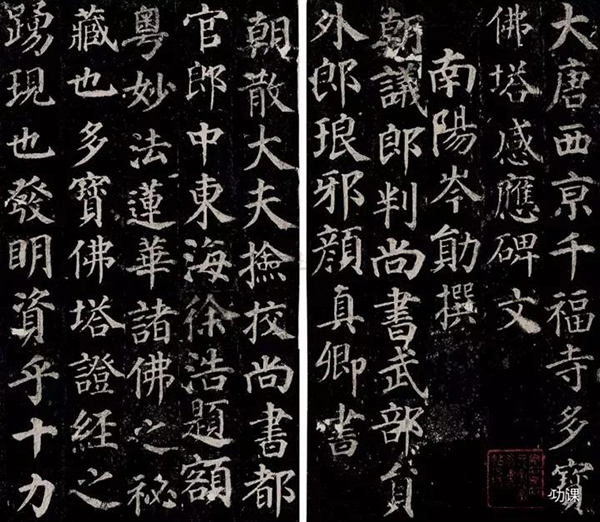 大唐西京千福寺多寶
佛塔感應碑文
南陽岑勛撰
朝議郎判尚書武部員
外郎琅邪顏真卿書
朝散大夫撿挍尚書都
官郎中東海徐浩題額
粵妙法蓮華諸佛之秘
藏也多寶佛塔證經之
踴現也發明資乎十力
功课